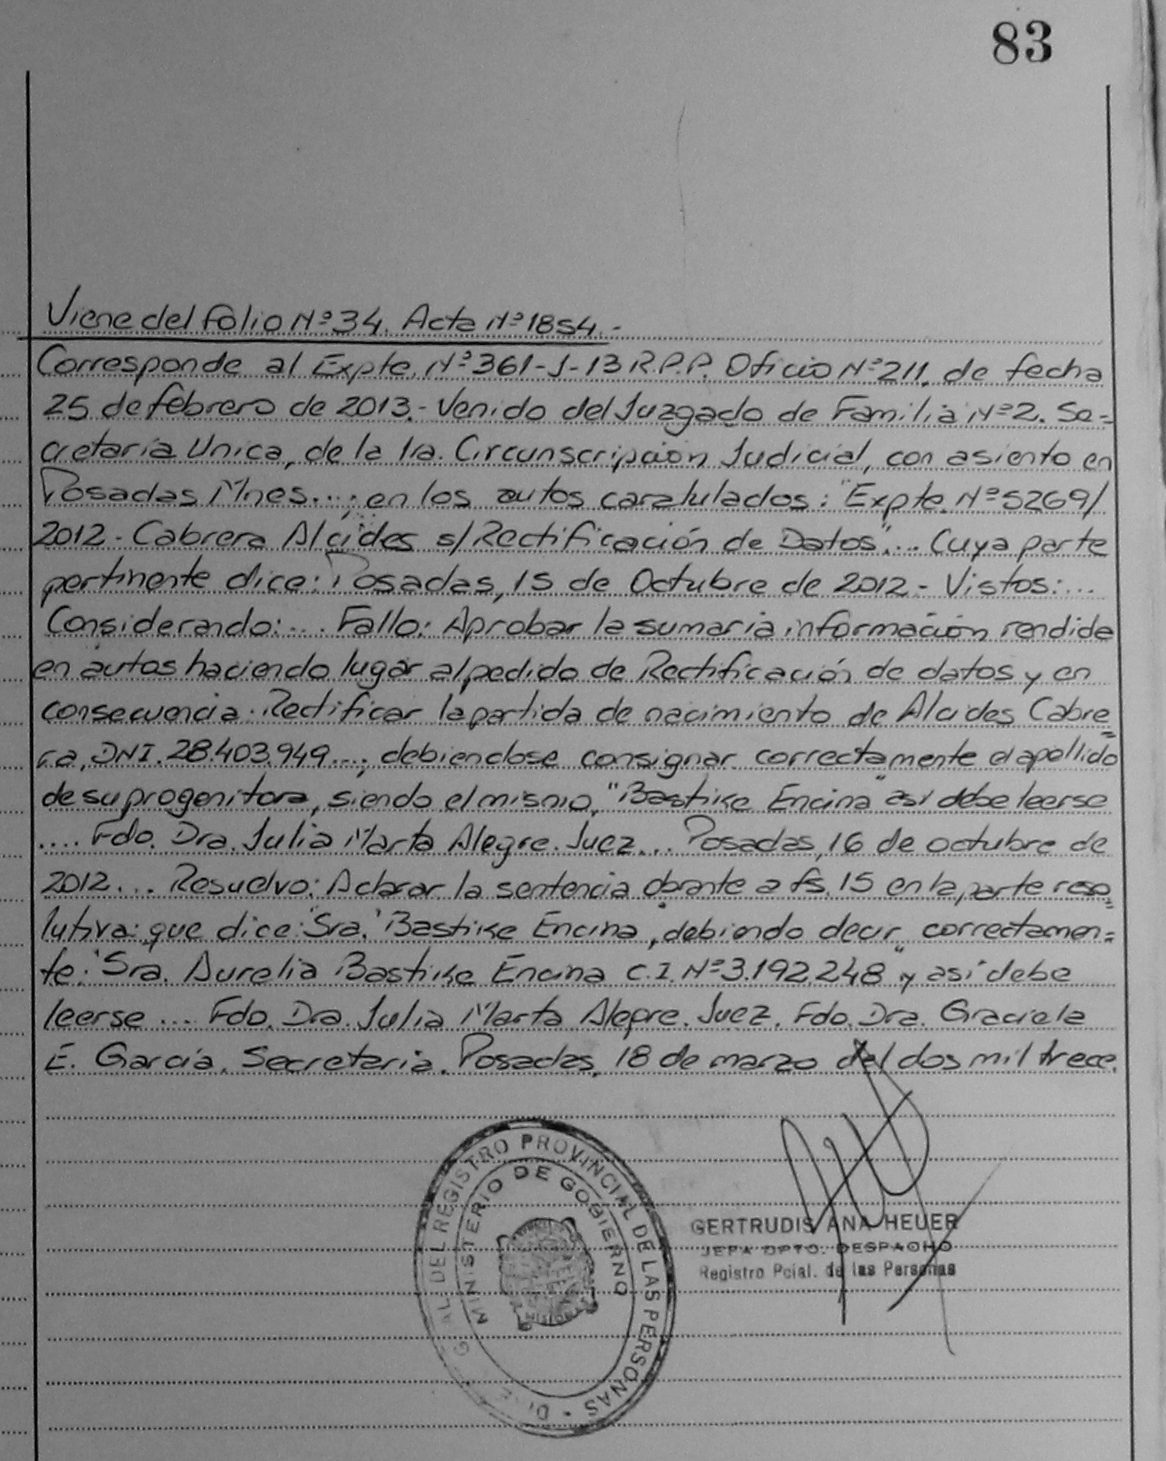 83
Viene del folio Nº 34. Acta Nº 1854.-
Corresponde al Expte. Nº 361-J-13 R.P.P. Oficio Nº 211. de fecha
25 de febrero de 2013.- Venido del Juzgado de Familia Nº 2. Se-
cretaria Unica, de la 1ra. Circunscripción Judicial, con asiento en
Posadas Mnes...; en los autos caratulados: "Expte. Nº 5269/
2012 - Cabrera Alcides s/Rectificación de Datos"... Cuya parte
pertinente dice: Posadas, 15 de Octubre de 2012.- Vistos:...
Considerando:... Fallo: Aprobar la sumaria información rendida
en autos haciendo lugar al pedido de Rectificación de datos y en
consecuencia. Rectificar la partida de nacimiento de Alcides Cabre=
ra, DNI. 28.403.949...; debiendose consignar correctamente el apellido
de su progenitora, siendo el mismo, "Bastike Encina" así debe leerse
.... Fdo. Dra. Julia Marta Alegre. Juez... Posadas, 16 de octubre de
2012... Resuelvo: Aclarar la sentencia obrante a fs. 15 en la parte reso=
lutiva: que dice: "Sra." Bastike Encina, debiendo decir correctamen=
te: "Sra. Aurelia Bastike Encina C.I. Nº 3.192.248" y así debe
leerse... Fdo. Dra. Julia Marta Alegre. Juez. Fdo. Dra. Graciela
E. García. Secretaria. Posadas, 18 de marzo del dos mil trece.
AL DEL REGISTRO PROVINCIAL DE LAS PERSONAS -
MINISTERIO DE GOBIERNO
GERTRUDIS ANA HEUER
JEFA DPTO. DESPACHO
Registro Pcial. de las Personas